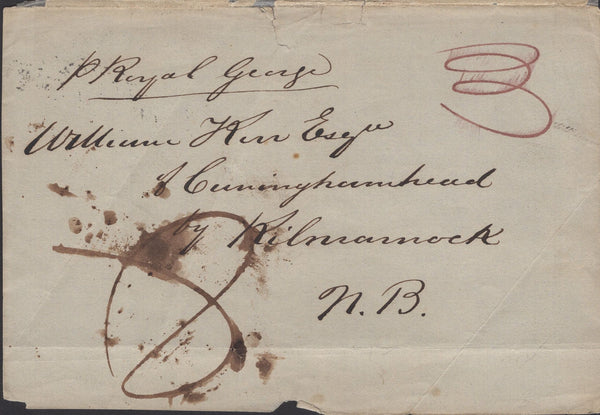 p Royal George
William Kerr Esqre
of Cuninghamhead
by Kilmarnock
N.B.
8